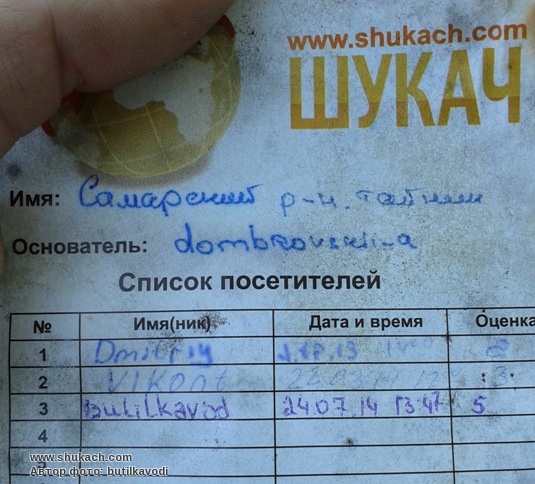 www.shukach.com
ШУКАЧ
Имя: Самарский р-н. тайник
Основатель: dombrovskii-a
Список посетителей
№ Имя(ник) Дата и время Оценка
1 Dmitriy
2 Vikont
3 butilkavod 24.07.14 13:47 5
4
5
www.shukach.com
Автор фото: butilkavodi